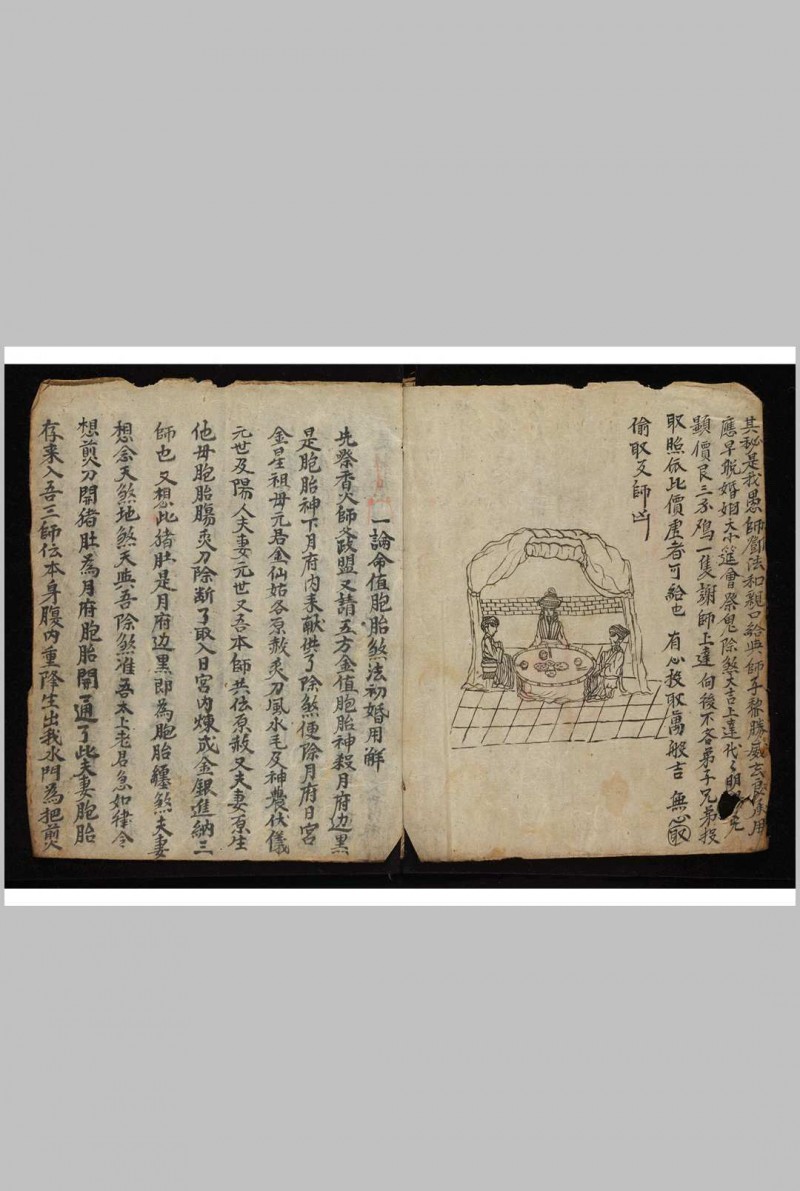 其秘是我愚師鄧法和親口給與師子黎勝威玄良再用
應早晚婚姻大小筵會祭鬼除煞大吉上達代々明
顕價艮三分鸡一隻謝師上達向後不吝弟子兄弟投
取照依比價虛者可給也 有心投取萬般吉 無心
偷取反師凶
一論命值胞胎煞法初婚用解
先祭香火師父政盟又請五方金值胞胎神殺月府边黑
是胞胎神下月府内来献供了除煞便除月府日宮
金星祖母元君金仙姑各原赦炙刀風水毛及神農伏儀
元世及陽人夫妻元世又吾本師共伭原赦又夫妻原生
他母胞胎腸炙刀除断了取入日宮内煉成金銀進納三
師也 又想此猪肚是月府边黑即為胞胎纏煞夫妻
想念天煞地煞天與吾除煞准吾太上老君急如律令
想煎刀開猪肚為月府胞胎開通了此夫妻胞胎
存来入吾三師伝本身腹内重降生出我水門為把煎